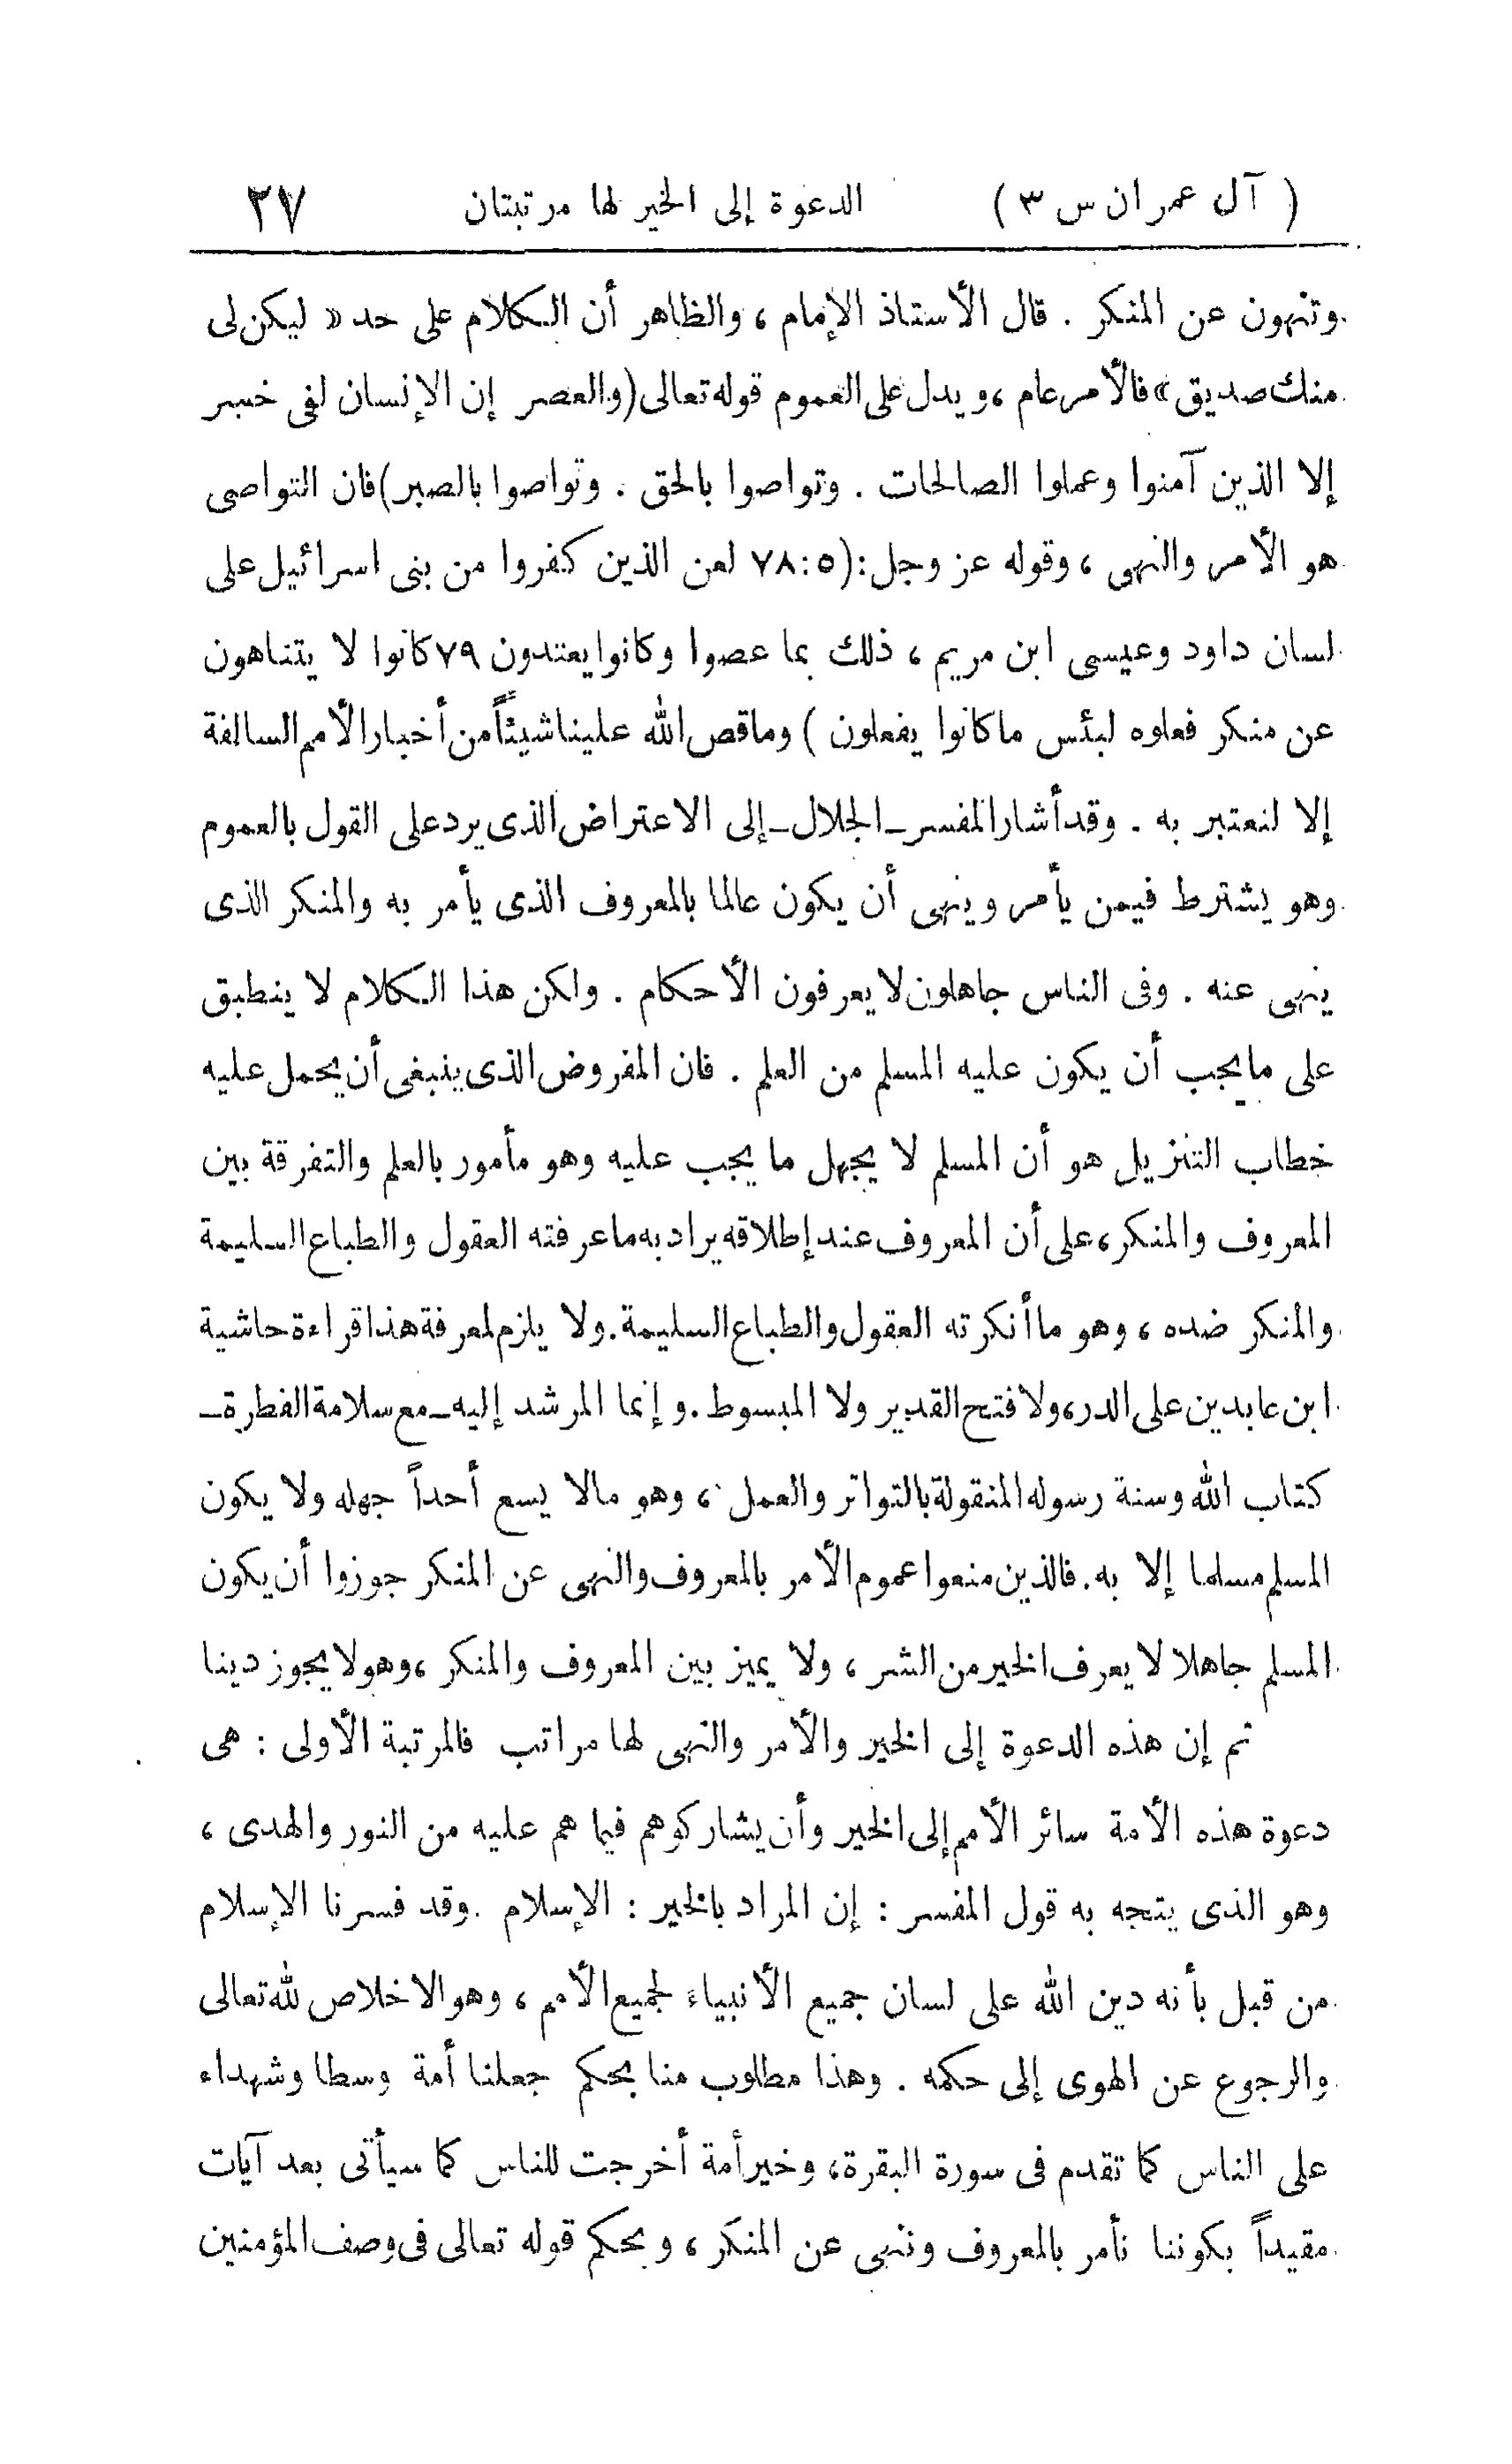 ( آل عمران س ٣ ) الدعوة إلى الخير لها مرتبتان ٢٧
وتنهون عن المنكر . قال الأستاذ الإمام ، والظاهر أن الكلام على حد « ليكن لى
منك صديق » فالأمر عام ، ويدل على العموم قوله تعالى ( والعصر إن الإنسان لفى خسر
إلا الذين آمنوا وعملوا الصالحات . وتواصوا بالحق . وتواصوا بالصبر ) فان التواصى
هو الأمر والنهى ، وقوله عز وجل : ( ٥ : ٧٨ لعن الذين كفروا من بنى اسرائيل على
لسان داود وعيسى ابن مريم ، ذلك بما عصوا وكانوا يعتدون ٧٩ كانوا لا يتناهون
عن منكر فعلوه لبئس ما كانوا يفعلون ) وما قص الله علينا شيئاً من أخبار الأمم السالفة
إلا لنعتبر به . وقد أشار المفسر ــ الجلال ــ إلى الاعتراض الذى يرد على القول بالعموم
وهو يشترط فيمن يأمر وينهى أن يكون عالما بالمعروف الذى يأمر به والمنكر الذى
ينهى عنه . وفى الناس جاهلون لا يعرفون الأحكام . ولكن هذا الكلام لا ينطبق
على ما يجب أن يكون عليه المسلم من العلم . فان المفروض الذى ينبغى أن يحمل عليه
خطاب التنزيل هو أن المسلم لا يجهل ما يجب عليه وهو مأمور بالعلم والتفرقة بين
المعروف والمنكر ، على أن المعروف عند إطلاقه يراد به ما عرفته العقول والطباع السليمة
والمنكر ضده ، وهو ما أنكرته العقول والطباع السليمة . ولا يلزم لمعرفة هذا قراءة حاشية
ابن عابدين على الدر ، ولا فتح القدير ولا المبسوط . وإنما المرشد إليه ــ مع سلامة الفطرة ــ
كتاب الله وسنة رسوله المنقولة بالتواتر والعمل ، وهو مالا يسع أحداً جهله ولا يكون
المسلم مسلما إلا به . فالذين منعوا عموم الأمر بالمعروف والنهى عن المنكر جوزوا أن يكون
المسلم جاهلا لا يعرف الخير من الشر ، ولا يميز بين المعروف والمنكر ، وهو لا يجوز دينا
ثم إن هذه الدعوة إلى الخير والأمر والنهى لها مراتب فالمرتبة الأولى : هى
دعوة هذه الأمة سائر الأمم إلى الخير وأن يشاركوهم فيما هم عليه من النور والهدى ،
وهو الذى يتجه به قول المفسر : إن المراد بالخير : الإسلام . وقد فسرنا الإسلام
من قبل بأنه دين الله على لسان جميع الأنبياء لجميع الأمم ، وهو الاخلاص لله تعالى
والرجوع عن الهوى إلى حكمه . وهذا مطلوب منا بحكم جعلنا أمة وسطا وشهداء
على الناس كما تقدم فى سورة البقرة ، وخير أمة أخرجت للناس كما سيأتى بعد آيات
مقيداً بكوننا نأمر بالمعروف وننهى عن المنكر ، وبحكم قوله تعالى فى وصف المؤمنين